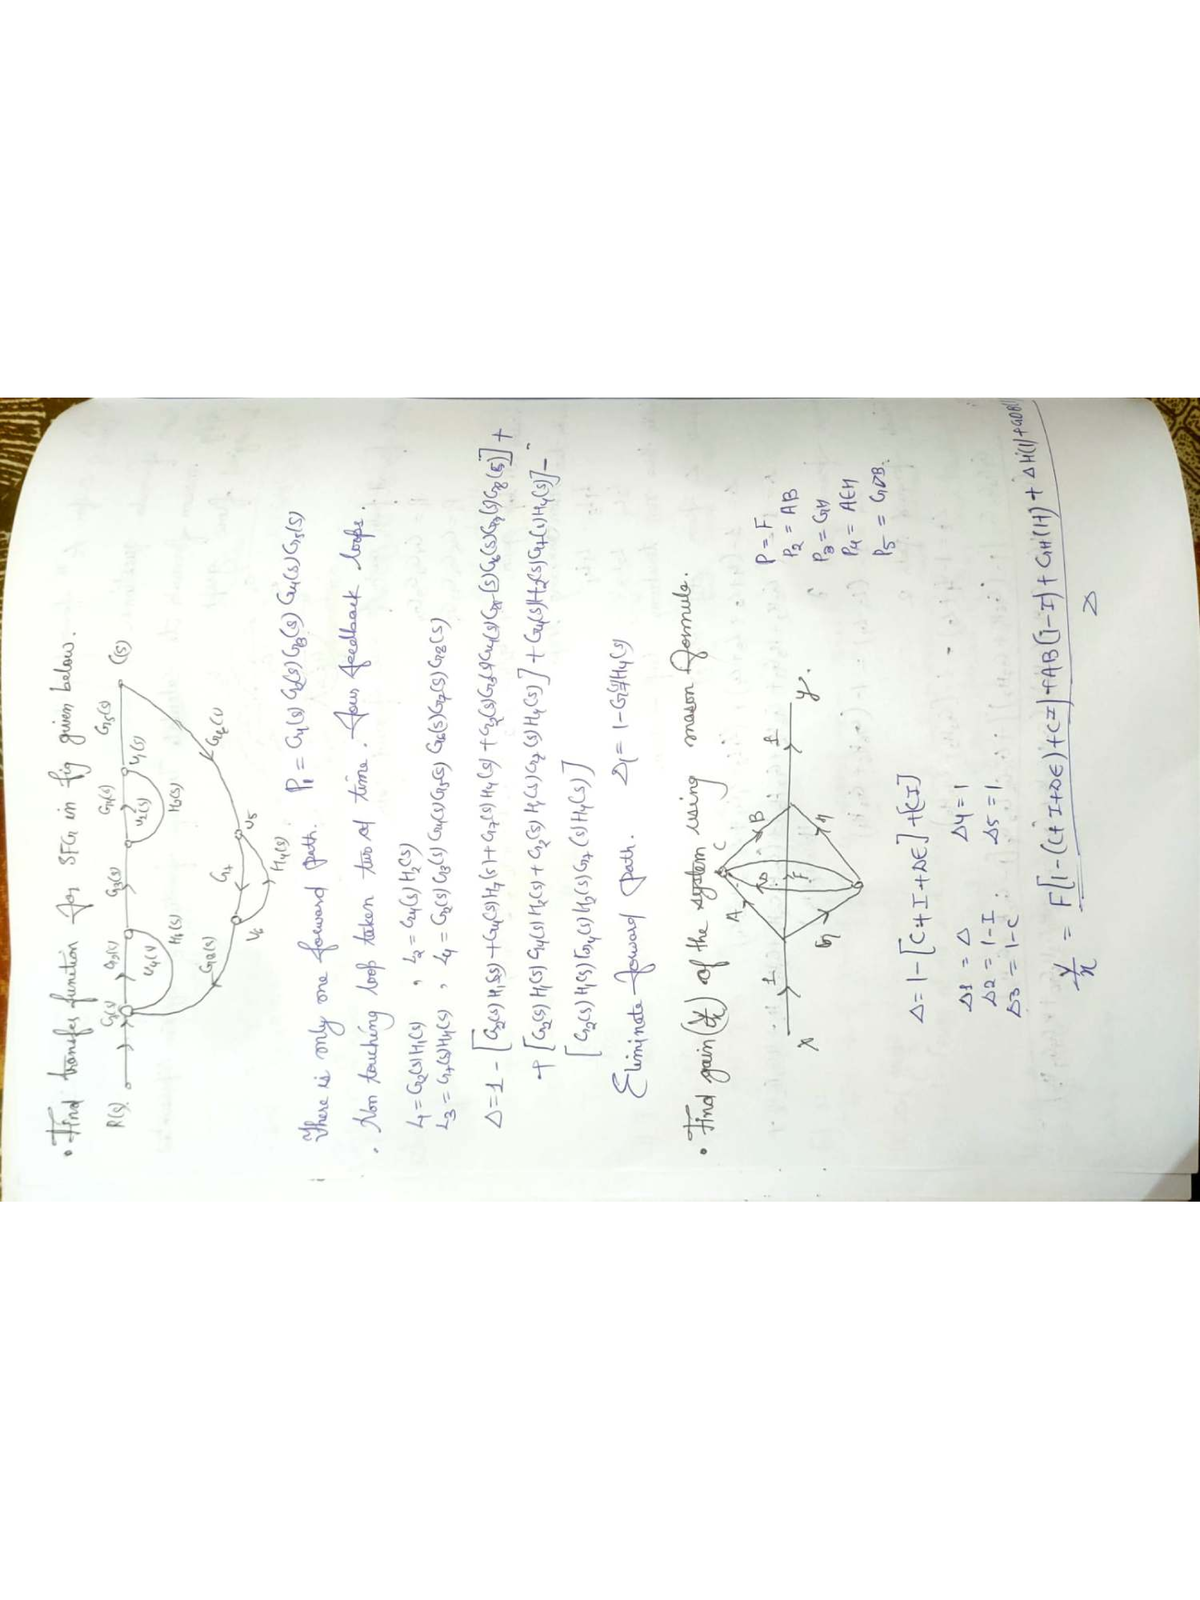 • Find transfer function for SFG in fig given below.
R(s) G1(s) G2(s) G3(s) G4(s) G5(s) C(s)
V4(s) V2(s) V1(s)
H1(s) H2(s)
G8(s) G7 G6(s)
V6 V5
H4(s)
There is only one forward path. P1 = G1(s) G2(s) G3(s) G4(s) G5(s)
• Non touching loop taken two at time. four feedback loops.
L1 = G2(s)H1(s) , L2 = G4(s) H2(s)
L3 = G7(s)H4(s) , L4 = G2(s) G3(s) G4(s)G5(s) G6(s)G7(s)G8(s)
Δ = 1 - [G2(s)H1(s) + G4(s)H2(s) + G7(s)H4(s) + G2(s)G3(s)G4(s)G5(s)G6(s)G7(s)G8(s)] +
+ [G2(s) H1(s) G4(s)H2(s) + G2(s) H1(s) G7(s)H4(s)] + G4(s)H2(s)G7(s)H4(s)] -
[G2(s) H1(s) G4(s) H2(s) G7(s)H4(s)]
Eliminate forward path. Δ1 = 1 - G7(s)H4(s)
• Find gain (y/x) of the system using mason formula.
x 1 A C B 1 y.
D F G H
P = F
P2 = AB
P3 = GH
P4 = AEH
P5 = GDB.
Δ = 1 - [C+I+DE] + [CI]
Δ1 = Δ Δ4 = 1
Δ2 = 1-I Δ5 = 1
Δ3 = 1-C
y/x = F[1-(C+I+DE)+CI]+AB(1-I)+GH(1-1)+AH(1)+GDB(1)
Δ